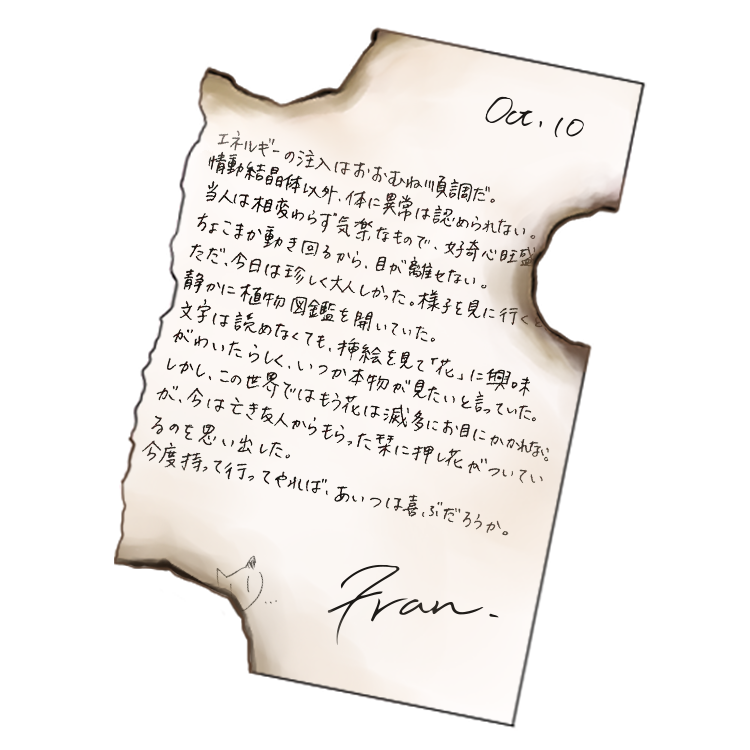 Oct. 10
エネルギーの注入はおおむね順調だ。
情動結晶体以外、体に異常は認められない。
当人は相変わらず気楽なもので、好奇心旺盛
ちょこまか動き回るから、目が離せない。
ただ、今日は珍しく大人しかった。様子を見に行くと
静かに植物図鑑を開いていた。
文字は読めなくても、挿絵を見て「花」に興味
がわいたらしく、いつか本物が見たいと言っていた。
しかし、この世界ではもう花は滅多にお目にかかれない
が、今は亡き友人からもらった栞に押し花がついてい
るのを思い出した。
今度持って行ってやれば、あいつは喜ぶだろうか。
...
Fran.